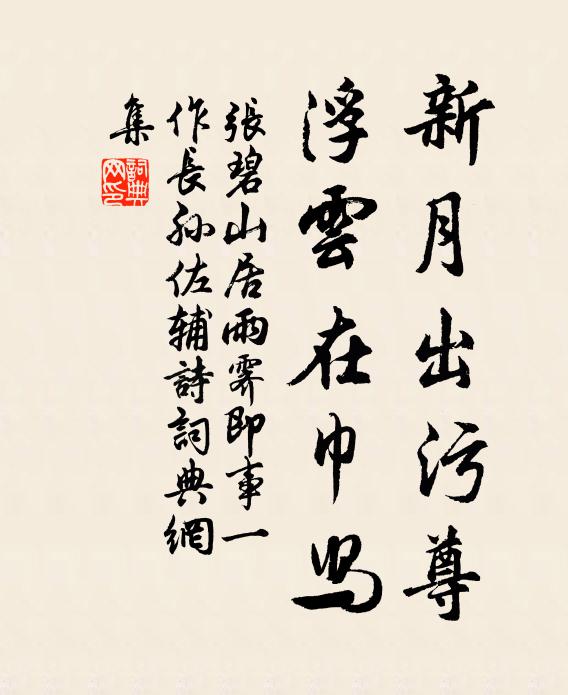 新月出污尊
浮雲在巾舄
張碧山居雨霽即事一
作長孙佐辅詩詞典網
集
詞典網印